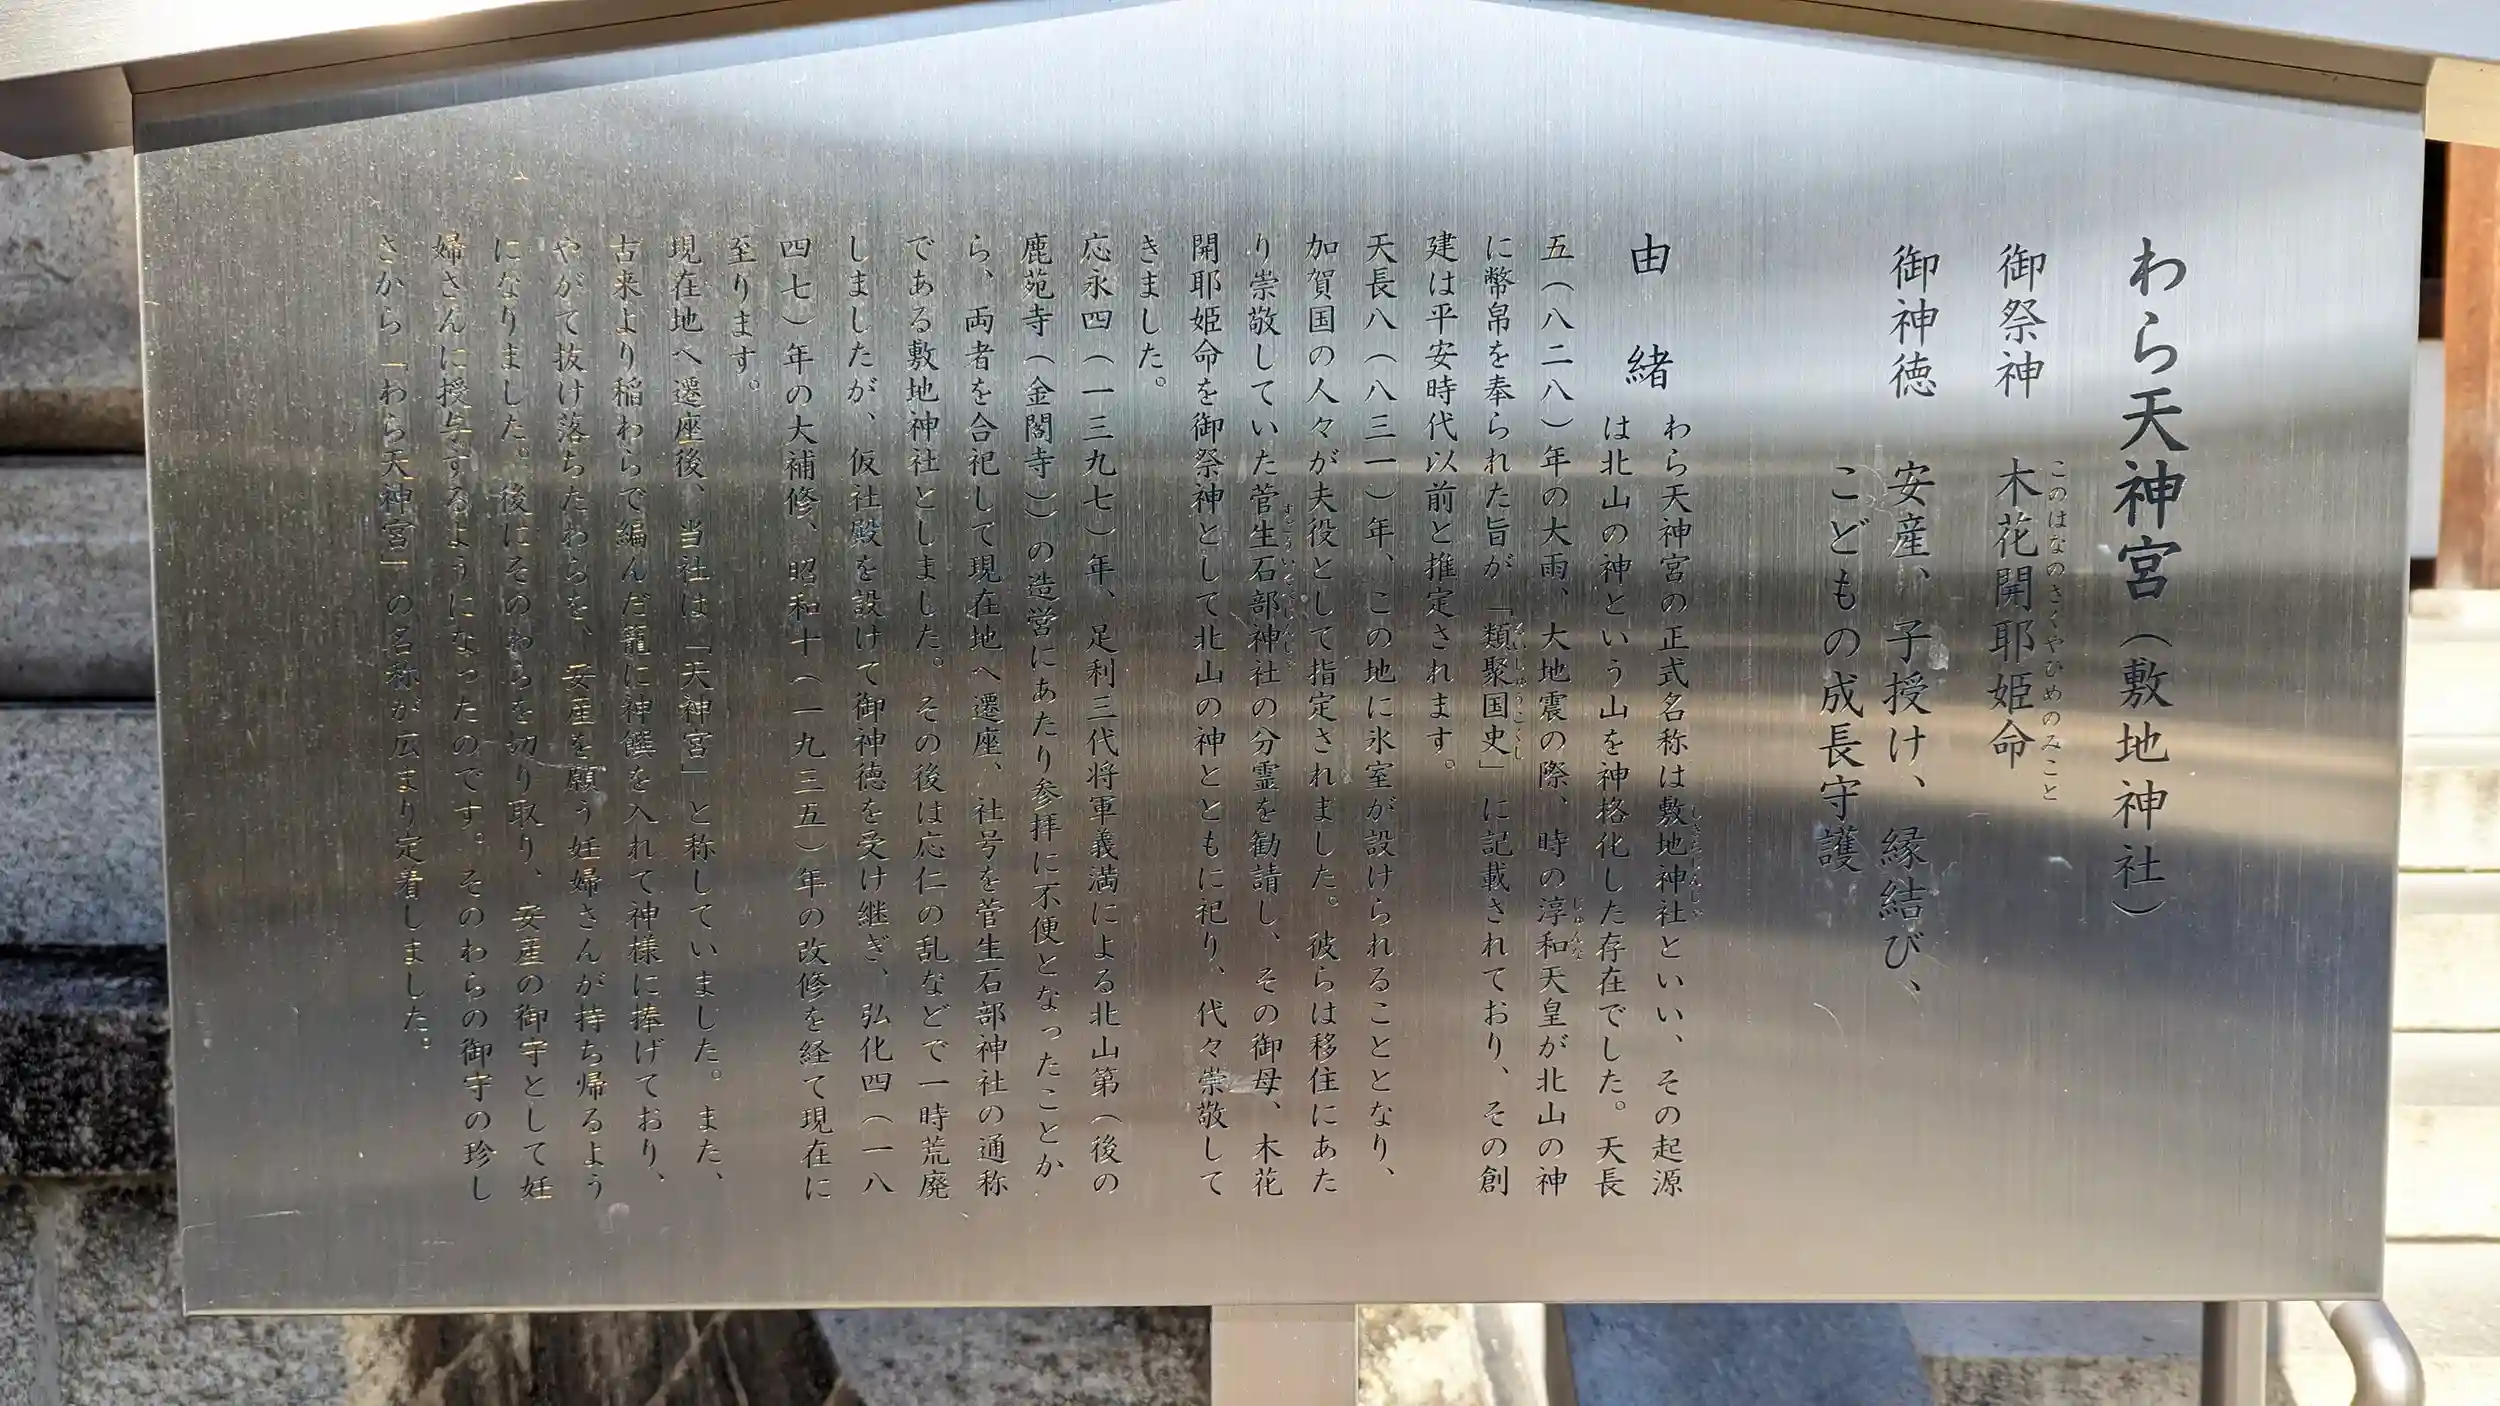 わら天神宮（敷地神社）
御祭神　木花開耶姫命
このはなのさくやひめのみこと
御神徳　安産、子授け、縁結び、
こどもの成長守護
由　緒
わら天神宮の正式名称は敷地神社といい、その起源
しきちじんじゃ
は北山の神という山を神格化した存在でした。天長
五（八二八）年の大雨、大地震の際、時の淳和天皇が北山の神
じゅんな
に幣帛を奉られた旨が「類聚国史」に記載されており、その創
るいじゅうこくし
建は平安時代以前と推定されます。
天長八（八三一）年、この地に氷室が設けられることとなり、
加賀国の人々が夫役として指定されました。彼らは移住にあた
り崇敬していた菅生石部神社の分霊を勧請し、その御母、木花
すごういそべじんじゃ
開耶姫命を御祭神として北山の神とともに祀り、代々崇敬して
きました。
応永四（一三九七）年、足利三代将軍義満による北山第（後の
鹿苑寺（金閣寺））の造営にあたり参拝に不便となったことか
ら、両者を合祀して現在地へ遷座、社号を菅生石部神社の通称
である敷地神社としました。その後は応仁の乱などで一時荒廃
しましたが、仮社殿を設けて御神徳を受け継ぎ、弘化四（一八
四七）年の大補修、昭和十（一九三五）年の改修を経て現在に
至ります。
現在地へ遷座後、当社は「天神宮」と称していました。また、
古来より稲わらで編んだ籠に神饌を入れて神様に捧げており、
やがて抜け落ちたわらを、安産を願う妊婦さんが持ち帰るよう
になりました。後にそのわらを切り取り、安産の御守として妊
婦さんに授与するようになったのです。そのわらの御守の珍し
さから「わら天神宮」の名称が広まり定着しました。